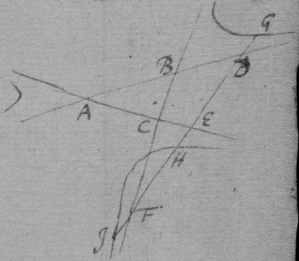 G
B
D
A
C
E
H
F
J